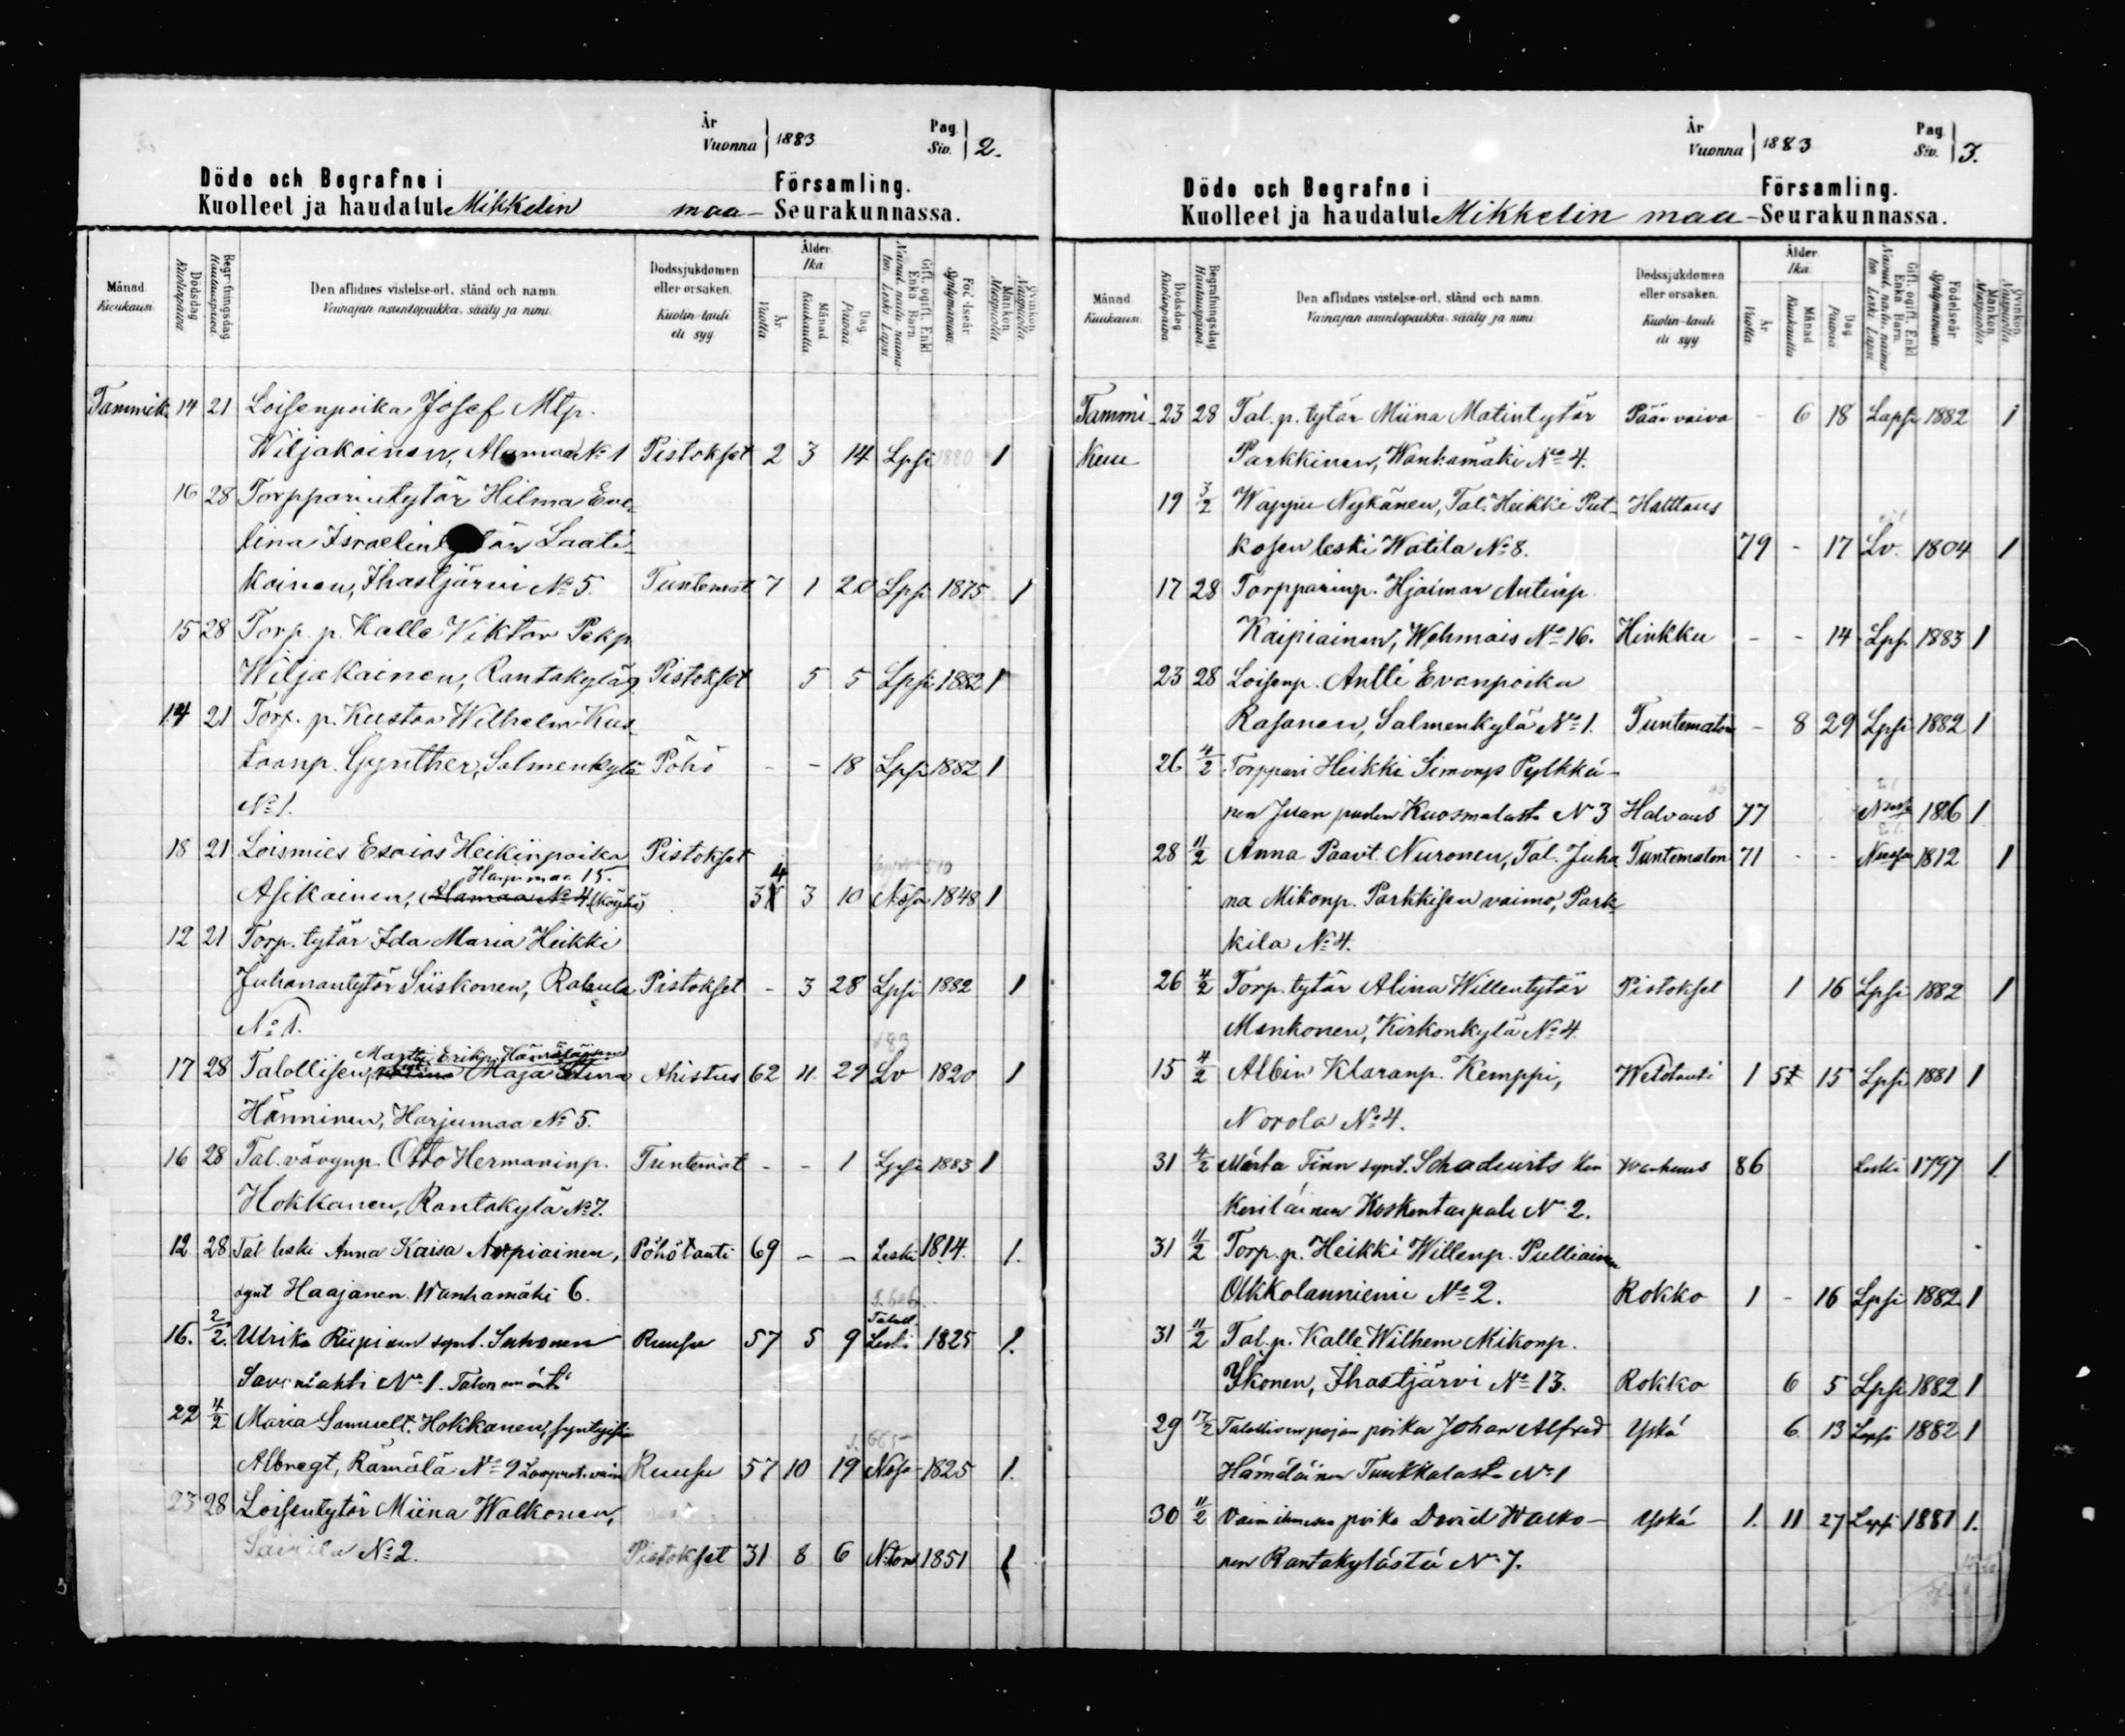 År
Vuonna } 1883
Pag.
Siv. } 2.
Döde och Begrafne i Församling.
Kuolleet ja haudatut Mikkelin maa- Seurakunnassa.
Månad. Kuukausi. Dödsdag Kuolinpäiwä Begrafningsdag Hautauspäiwä Den aflidnes vistelse-ort, stånd och namn. Vainajan asuntopaikka, sääty ja nimi. Dödssjukdomen eller orsaken. Kuolin-tauli eli syy. Ålder. Ikä. År Vuotta Månad Kuukautta Dag Päivää Gift, ogift, Enkl. Enka Barn. Födelseår Syntymävuosi Mankön. Miespuolia Qvinkön. Naispuolia
Tammik 14 21 Loisenpoika Josef Mtp.
Wiljakainen, Alamaa No 1 Pistokset 2 3 14 Lpsi 1880 1
16 28 Torpparintytär Hilma Eve-
lina Israelintytär Laati-
kainen, Ihastjärvi No 5. Tuntemat 7 1 20 Lpsi 1875 1
15 28 Torp. p. Kalle Viktor Pekp.
Wiljakainen, Rantakylä 9 Pistokset 5 5 Lpsi 1882 1
14 21 Torp. p. Kustaa Wilhelm Kus-
taanp. Gynther, Salmenkylä Pöhö - - 18 Lpsi 1882 1
No 1.
18 21 Loismies Esaias Heikinpoika Pistokset
Harjumaa 15.
Asikainen, Alamaa No 4 (Köyhä) 34 3 10 Nssa 1848 1
12 21 Torp. tytär Ida Maria Heikki
Juhanantytär Siiskonen, Rahula Pistokset - 3 28 Lpsi 1882 1
No 1.
Martti Erikp. Hämäläisen
17 28 Talollisen Maja Stina Ahistus 62 4 29 Lv 1820 1
Hänninen, Harjumaa No 5.
16 28 Tal. vävynp. Otto Hermaninp. Tuntemat - - 1 Lpsi 1883 1
Hokkanen, Rantakylä No 7.
12 28 Tal leski Anna Kaisa Arpiainen, Pöhötauti 69 - - Leski 1814. 1.
synt Haajanen. Wanhamäki 6.
16. 2/2. Ulrika Riipinen synt. Suhonen Ruusu 57 5 9 Leski 1825 1.
No 1.
22 4/2 Maria Samuelt. Hokkanen, syntyisin
Albregt, Rämälä No 9 Ruusu 57 10 19 Nssa 1825 1.
23 28 Loisentytär Miina Walkonen,
No 2. Pistokset 31 8 6 Nton 1851 1
År
Vuonna } 1883
Pag.
Siv. } 3.
Döde och Begrafne i Församling.
Kuolleet ja haudatut Mikkelin maa- Seurakunnassa.
Månad. Kuukausi. Dödsdag Kuolinpäiwä Begrafningsdag Hautauspäiwä Den aflidnes vistelse-ort, stånd och namn. Vainajan asuntopaikka, sääty ja nimi. Dödssjukdomen eller orsaken. Kuolin-tauli eli syy. Ålder. Ikä. År Vuotta Månad Kuukautta Dag Päivää Gift, ogift, Enkl. Enka Barn. Födelseår Syntymävuosi Mankön. Miespuolia Qvinkön. Naispuolia
Tammi- 23 28 Tal. p. tytär Miina Matintytär Pään vaiva - 6 18 Lapsi 1882 1
kuu Parkkinen, Wanhamäki No 4.
19 3/2 Wappu Nykänen, Tal. Heikki Put- Halttaus
kosen leski Watila No 8. 79 - 17 Lv. 1804 1
17 28 Torpparinp. Hjalmar Antinp.
Kaipiainen, Wehmais No 16. Hinkku - - 14 Lps. 1883 1
23 28 Loisenp. Antti Evanpoika
Rasanen, Salmenkylä No 1. Tuntematon - 8 29 Lpsi 1882 1
26 4/2 Torppari Heikki Simonp Pylkkä-
nen Kuosmalasta No 3 Halvaus 77 1806 1
28 11/2 Anna Paavt. Nuronen, Tal. Juha- Tuntematon 71 - - Nussa 1812 1
na Mikonp. Parkkisen vaimo, Park-
kila No 4.
26 4/2 Torp. tytär Alina Willentytär Pistokset 1 16 Lpsi 1882 1
Mankonen, Kirkonkylä No 4.
15 4/2 Albin Klaranp. Kemppi, Wetotauti 1 5 15 Lpsi 1881 1
Norola No 4.
31 4/2 Märta Finn synt. wanhuus 86 Leski 1797 1.
Keriläinen Koskentaipale No 2.
31 11/2 Torp. p. Heikki Willenp. Pulliainen
Olkkolanniemi No 2. Rokko 1 - 16 Lpsi 1882 1
31 11/2 Tal. p. Kalle Wilhem Mikonp.
Ikonen, Ihastjärvi No 13. Rokko 6 5 Lpsi 1882 1
29 17/2 Talollisen pojan poika Johan Alfred Yskä 6 13 Lapsi 1882 1
Hämäläinen Tuukkalasta No 1
30 11/2 poika David Walko- Yskä 1. 11 27 Lapsi 1881 1.
nen Rantakylästä No 7.